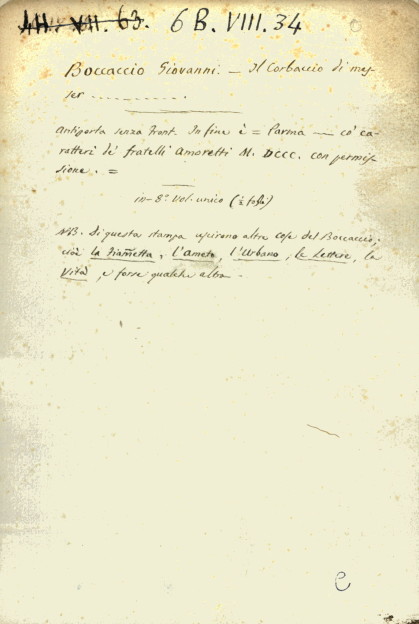 4H. XII. 63. 6 B. VIII. 34
Boccaccio Giovanni. — Il Corbaccio di mes-
ser ..............
Antiporta senza front. In fine è = Parma — co' ca-
ratteri de' fratelli Amoretti M. DCCC. con permis-
sione. =
in-8.° Vol. unico
NB. Di questa stampa uscirono altre cose del Boccaccio;
cioè la Fiammetta, l'Ameto, l'Urbano, le Lettere, la
Vita, e forse qualche altra.
e